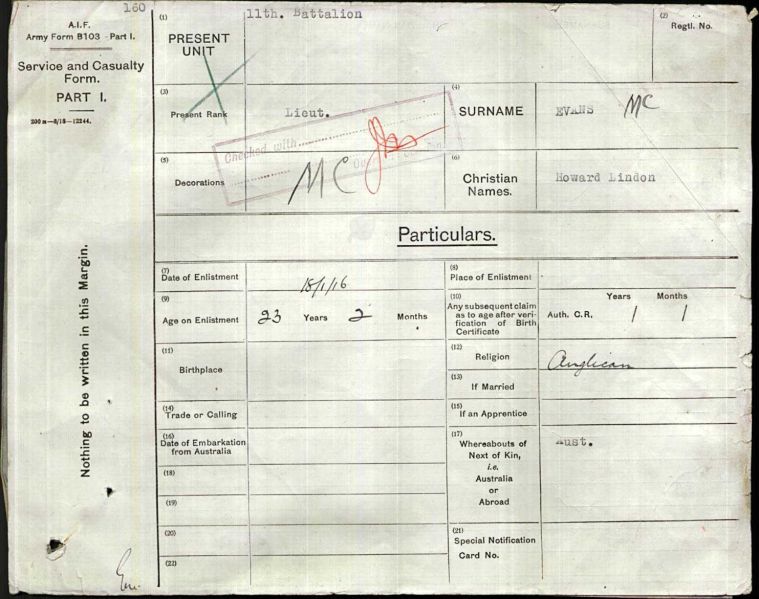 160
A.I.F.
Army Form B103 - Part I.
Service and Casualty
Form.
PART I.
200 m—8/18—12244.
Nothing to be written in this Margin.
(1)
PRESENT
UNIT
11th. Battalion
(2)
Regtl. No.
(3)
Present Rank
Lieut.
(4)
SURNAME
EVANS MC
Checked with
(5)
Decorations
MC
(6)
Christian
Names.
Howard Lindon
Particulars.
(7)
Date of Enlistment
18/1/16
(8)
Place of Enlistment
(9)
Age on Enlistment
23 Years 2 Months
(10)
Any subsequent claim
as to age after veri-
fication of Birth
Certificate
Years Months
Auth. C.R. / /
(11)
Birthplace
(12)
Religion
Anglican
(13)
If Married
(14)
Trade or Calling
(15)
If an Apprentice
(16)
Date of Embarkation
from Australia
(17)
Whereabouts of
Next of Kin,
i.e.
Australia
or
Abroad
Aust.
(18)
(19)
(20)
(21)
Special Notification
Card No.
(22)